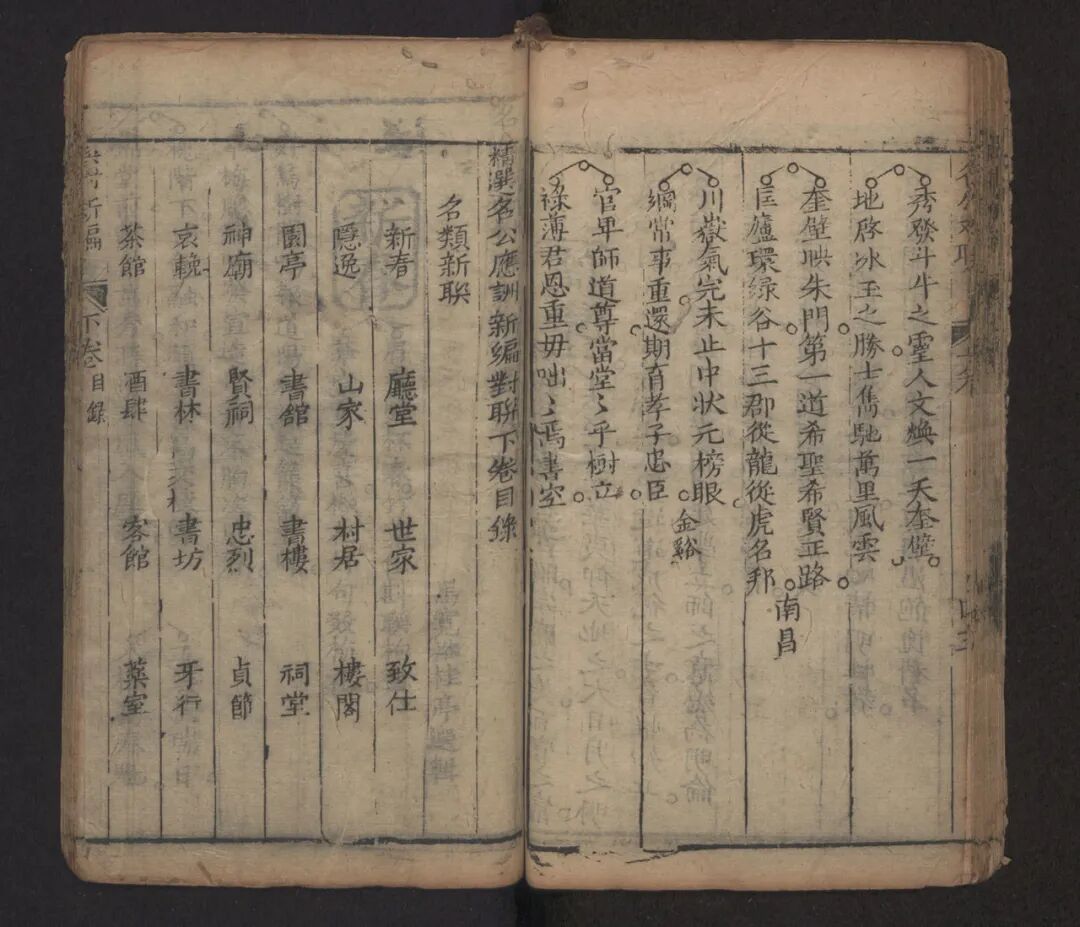 秀發斗牛之靈人文煥一天奎壁
地啓冰玉之勝士雋馳萬里風雲
奎壁映朱門第一道希聖希賢正路
匡廬環綠谷十三郡從龍從虎名邦
南昌
川嶽氣完未止中狀元榜眼
綱常事重還期育孝子忠臣
金谿
官卑師道尊當堂〻乎樹立
祿薄君恩重毋咄〻焉書空
精選名公應訓新編對聯下卷目錄
名類新聯
新春 廳堂 世家 致仕
隱逸 山家 村居 樓閣
園亭 書舘 書樓 祠堂
神廟 賢祠 忠烈 貞節
哀輓 書林 書坊 牙行
茶館 酒肆 客館 藥室
新編 下卷 目錄